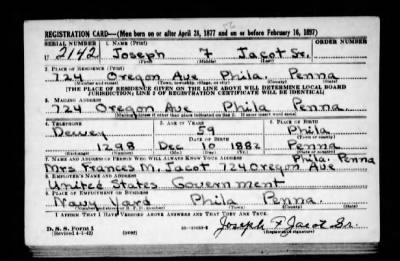 REGISTRATION CARD—(Men born on or after April 28, 1877 and on or before February 16, 1897)
SERIAL NUMBER 1. NAME (Print) ORDER NUMBER
U 2142 Joseph F Jacot Sr.
(First) (Middle) (Last)
2. PLACE OF RESIDENCE (Print)
724 Oregon Ave Phila. Penna
(Number and street) (Town, township, village, or city) (County) (State)
[THE PLACE OF RESIDENCE GIVEN ON THE LINE ABOVE WILL DETERMINE LOCAL BOARD
JURISDICTION; LINE 2 OF REGISTRATION CERTIFICATE WILL BE IDENTICAL]
3. MAILING ADDRESS
724 Oregon Ave Phila Penna
[Mailing address if other than place indicated on line 2. If same insert word same]
4. TELEPHONE 5. AGE IN YEARS 6. PLACE OF BIRTH
Dewey 59 Phila
DATE OF BIRTH (Town or county)
1298 Dec 10 1882 Penna
(Exchange) (Number) (Mo.) (Day) (Yr.) (State or country)
7. NAME AND ADDRESS OF PERSON WHO WILL ALWAYS KNOW YOUR ADDRESS
Phila. Penna
Mrs Frances M. Jacot 724 Oregon Ave
8. EMPLOYER'S NAME AND ADDRESS
United States Government
9. PLACE OF EMPLOYMENT OR BUSINESS
Navy Yard Phila Penna.
(Number and street or R. F. D. number) (Town) (County) (State)
I AFFIRM THAT I HAVE VERIFIED ABOVE ANSWERS AND THAT THEY ARE TRUE.
D. S. S. Form 1
(Revised 4-1-42) (over)
Joseph F Jacot Sr.
(Registrant's signature)